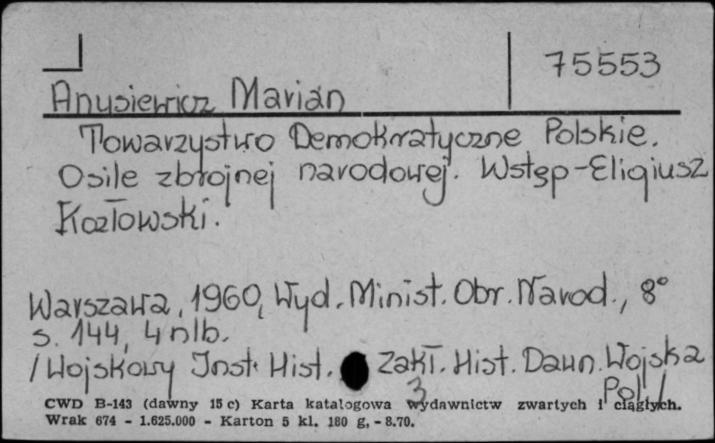 75553
Anusiewicz Marian
Towarzystwo Demokratyczne Polskie.
O sile zbrojnej narodowej. Wstęp - Eligiusz
Kozłowski.
Warszawa, 1960, Wyd. Minist. Obr. Narod., 8°
s. 144, 4 nlb.
/Wojskowy Inst. Hist. Zakł. Hist. Dawn. Wojska
Pol./
3
CWD B-143 (dawny 15 c) Karta katalogowa wydawnictw zwartych i ciągłych.
Wrak 674 - 1.625.000 - Karton 5 kl. 180 g, - 8.70.